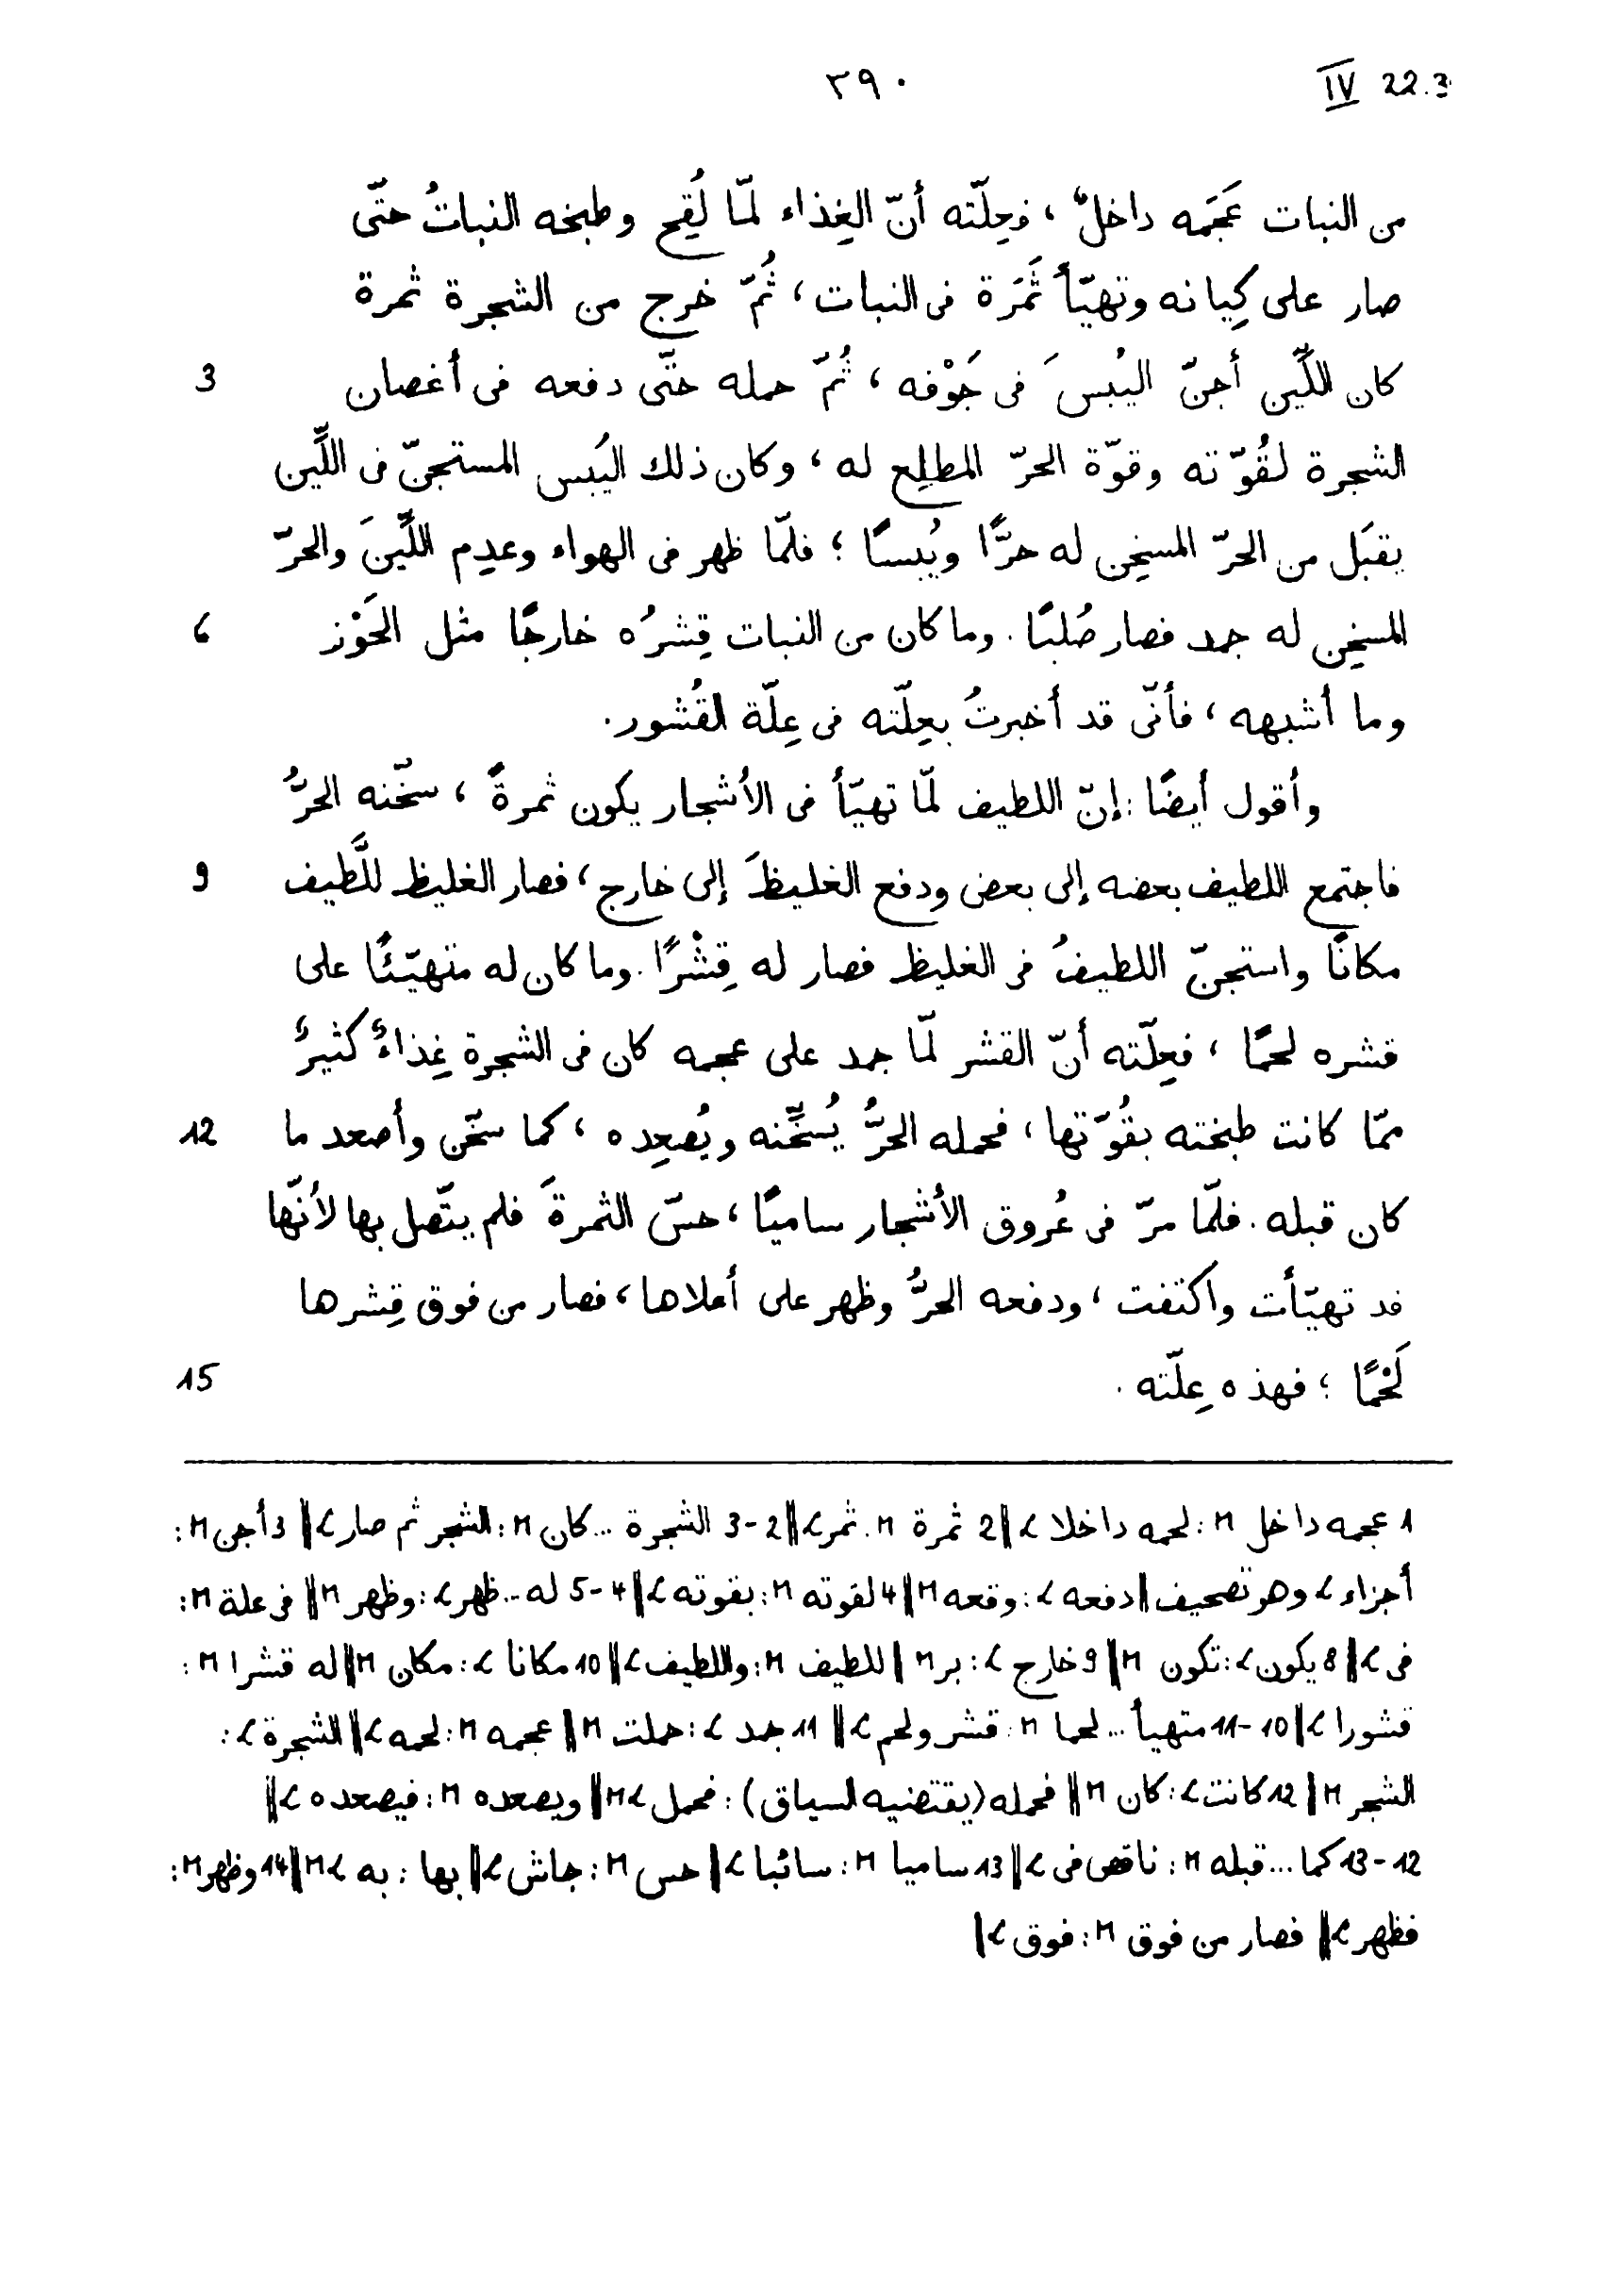 ٣٩٠ IV 22.3
من النبات عَجَمه داخلٌ، فعِلّته أنّ الغِذاء لمّا لُقِح وطبخه النباتُ حتّى
صار على كِيانه وتهيّأ ثَمَرة فى النبات، ثُمّ خرج من الشجرة ثمرة
كان اللَّيِّن أجنّ اليُبسَ فى جَوْفه، ثُمّ حمله حتّى دفعه فى أغصان 3
الشجرة لقُوّته وقوّة الحرّ المطلِع له، وكان ذلك اليُبس المستجنّ فى اللَّيِّن
يقبَل من الحرّ المسخِن له حرًّا ويُبسًا؛ فلمّا ظهر فى الهواء وعدِم اللَّيِّنَ والحرّ
المسخِن له جمد فصار صُلبًا. وما كان من النبات قِشرُه خارجًا مثل الجَوْز 6
وما أشبهه، فأنّى قد أخبرتُ بعِلّته فى عِلّة القُشور.
وأقول أيضًا: إنّ اللطيف لمّا تهيّأ فى الأشجار يكون ثمرةً، سخّنه الحرُّ
فاجتمع اللطيف بعضه إلى بعض ودفع الغليظَ إلى خارج، فصار الغليظ للَّطيف 9
مكانًا واستجنّ اللطيفُ فى الغليظ فصار له قِشْرًا. وما كان له متهيّئًا على
قشره لحمًا، فعِلّته أنّ القشر لمّا جمد على عجمه كان فى الشجرة غِذاءٌ كثيرٌ
ممّا كانت طبخته بقُوّتها، فحمله الحرُّ يُسخِّنه ويُصعِده، كما سخّن وأصعد ما 12
كان قبله. فلمّا مرّ فى عُروق الأشجار ساميًا، حسّ الثمرةَ فلم يتّصل بها لأنّها
قد تهيّأت واكتفت، ودفعه الحرُّ وظهر على أعلاها، فصار من فوق قِشرها
لَحْمًا؛ فهذه عِلّته. 15
1 عجمه داخل M: لحمه داخلا L || 2 ثمرة M. ثمر L || 2-3 الشجرة ... كان M: الشجر ثم صار L || 3 أجن M:
أجزاء L وهو تصحيف | دفعه L: وقعه M || 4 لقوته M: بقوته L || 4-5 له ... ظهر L: وظهر M || فى علة M:
فى L || 8 يكون L: تكون M || 9 خارج L: بر M | للطيف M: واللطيف L || 10 مكانا L: مكان M || له قشرا M:
قشورا L || 10-11 متهيأ ... لحما M: قشر ولحم L || 11 جمد L: حملت M || عجمه M: لحمه L || الشجرة L:
الشجر M || 12 كانت L: كان M || فحمله (يقتضيه السياق): فحمل LM || ويصعده M: فيصعده L ||
12-13 كما ... قبله M: ناقص فى L || 13 ساميا M: سائبا L | حس M: جاش L || بها: به LM || 14 وظهر M:
فظهر L || فصار من فوق M: فوق L |